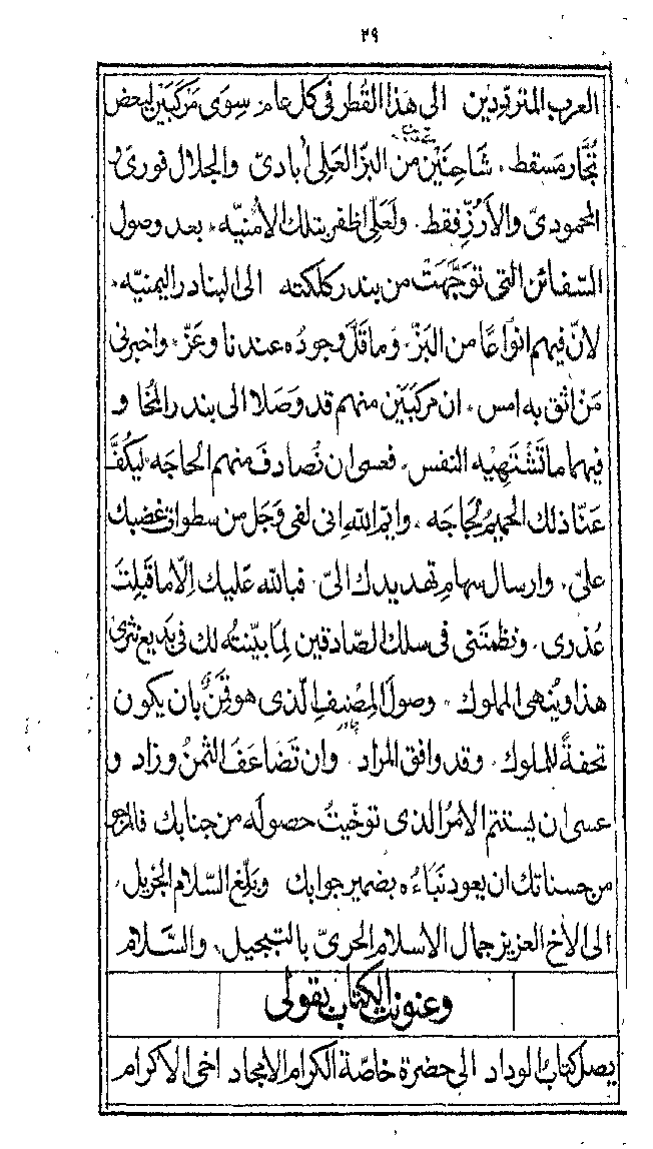 ٢٩
العرب المتردّدين الى هَذا القُطر فى كل عام سِوَى مَركَبَين لبعض
تُجّار مَسقط، شَاحِنَيْن من البَزّ العَلِى اٰبادىّ والجلال فورى و
المحمودىّ والاَرُزّ فقط، ولَعَلّى اظفر بتلك الاُمنيّه، بعد وصول
السّفائن التى تَوَجَّهَتْ من بندر كلكته الى البنادر اليمنيّه،
لانّ فيهم انْوَاعًا من البَزّ، وَما قَلّ وجودُه عندنا وعَزّ، واخبرنى
مَنْ اثق به امس، ان مركَبَين منهم قد وَصَلا الى بندر المُخا و
فيهما ما تَشْتَهِيْه النفس، فعسى ان نُصادفَ منهم الحاجَه، ليَكُفَّ
عَنّا ذلك الحميمُ لَجاجَه، وايمُ اللهِ انى لفى وَجَل من سطوات غضبك
علىّ، وارسال سهام تهديدك الىّ، فبالله عَليك اِلّا ما قَبِلتَ
عُذرى، ونظمتَنى فى سلك الصّادقين لِما بيّنتُه لك فى بَديع نثرى
هذا ويُنهى المملوك، وصولَ المِصْنفِ الّذى هو قَمِنٌ بان يكون
تحفةً للملوك، وقد وافق المراد، وان تَضاعَفَ الثمنُ وزاد و
عسى ان يستتم الامرُ الذى توخّيتُ حصولَه من جنابك فالمرجو
من حسناتك ان يعود نَبَاءُه بضمير جوابك وبَلّغ السّلام الجزيل،
الى الاخ العزيز جمال الاسلام الحرىّ بالتبجيل، والسَّلام
وعنونتُ الكتاب بقولى
يصل كتابُ الوداد الى حضرة خاصّة الكرام الامجاد اخى الاكرام